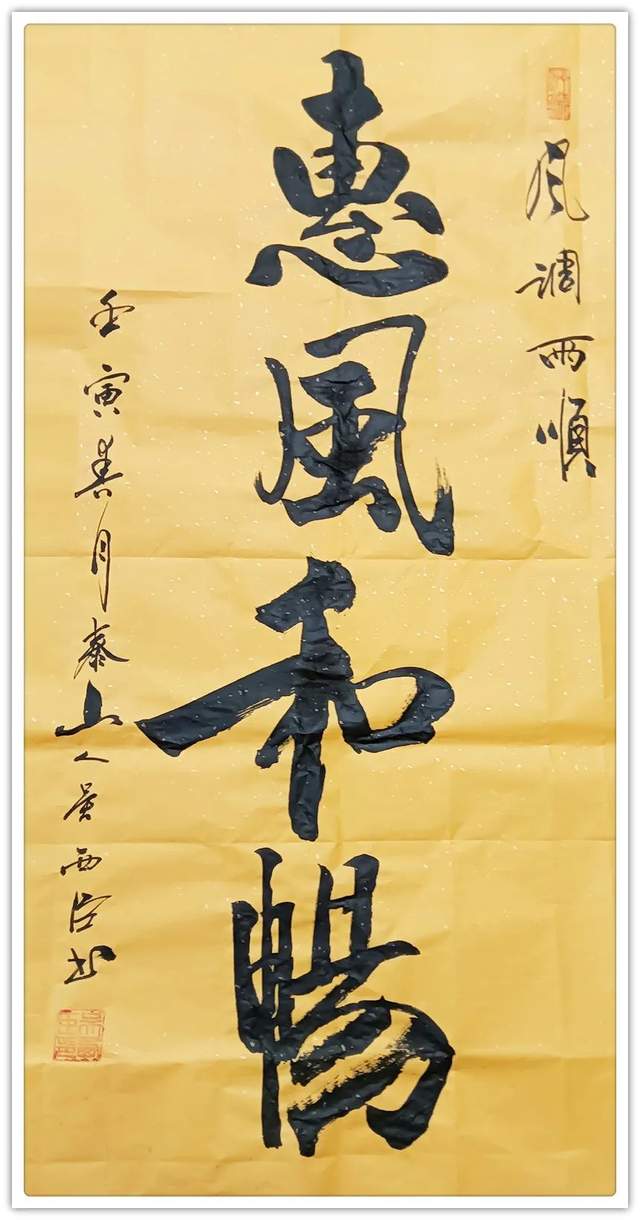 風調雨順
惠風和暢
壬寅春月泰山人吴西臣书